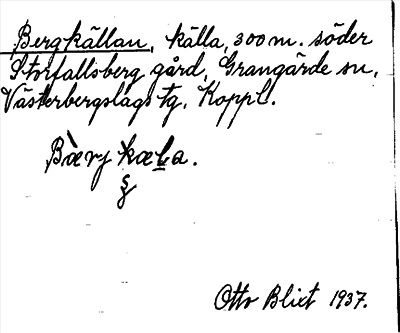 Bergkällan, källa, 300 m. söder
Storfallsberg gård, Grangärde sn,
Västerbergslags tg, Koppl.
Bærj kæLa.
Otto Blixt 1937.